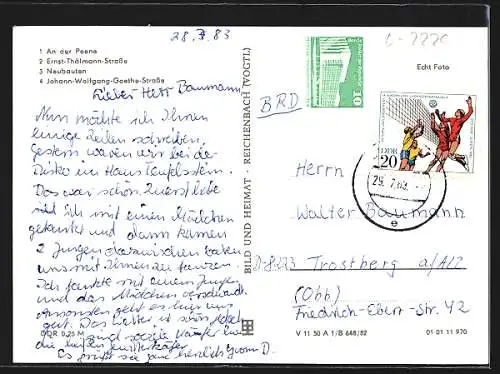 28. 7. 83
1 An der Peene
2 Ernst-Thälmann-Straße
3 Neubauten
4 Johann-Wolfgang-Goethe-Straße
Lieber Herr Baumann,
Nun möchte ich Ihnen
einige Zeilen schreiben,
gestern waren wir bei der
Disko im Haus
Das war schön. Zuerst habe
ich mit einem Mädchen
getanzt und dann kamen
2 Jungen dazwischen baten
uns mit Ihnen zu tanzen.
Ich tanzte mit einem Jungen
und das Mädchen verschwand.
Ansonsten geht es hier uns
gut. Das Wetter ist schön
und
die
Es grüßt sie ganz herzlich Yvonn D.
DDR 0,25 M
BILD UND HEIMAT · REICHENBACH (VOGTL)
Echt Foto
BRD
10
DDR
20
29. 7. 83
e
Herrn
Walter Baumann
D-8223 Trostberg a/Alz
(Obb)
Friedrich-Ebert-Str. 42
V 11 50 A 1/B 648/82
01 01 11 970